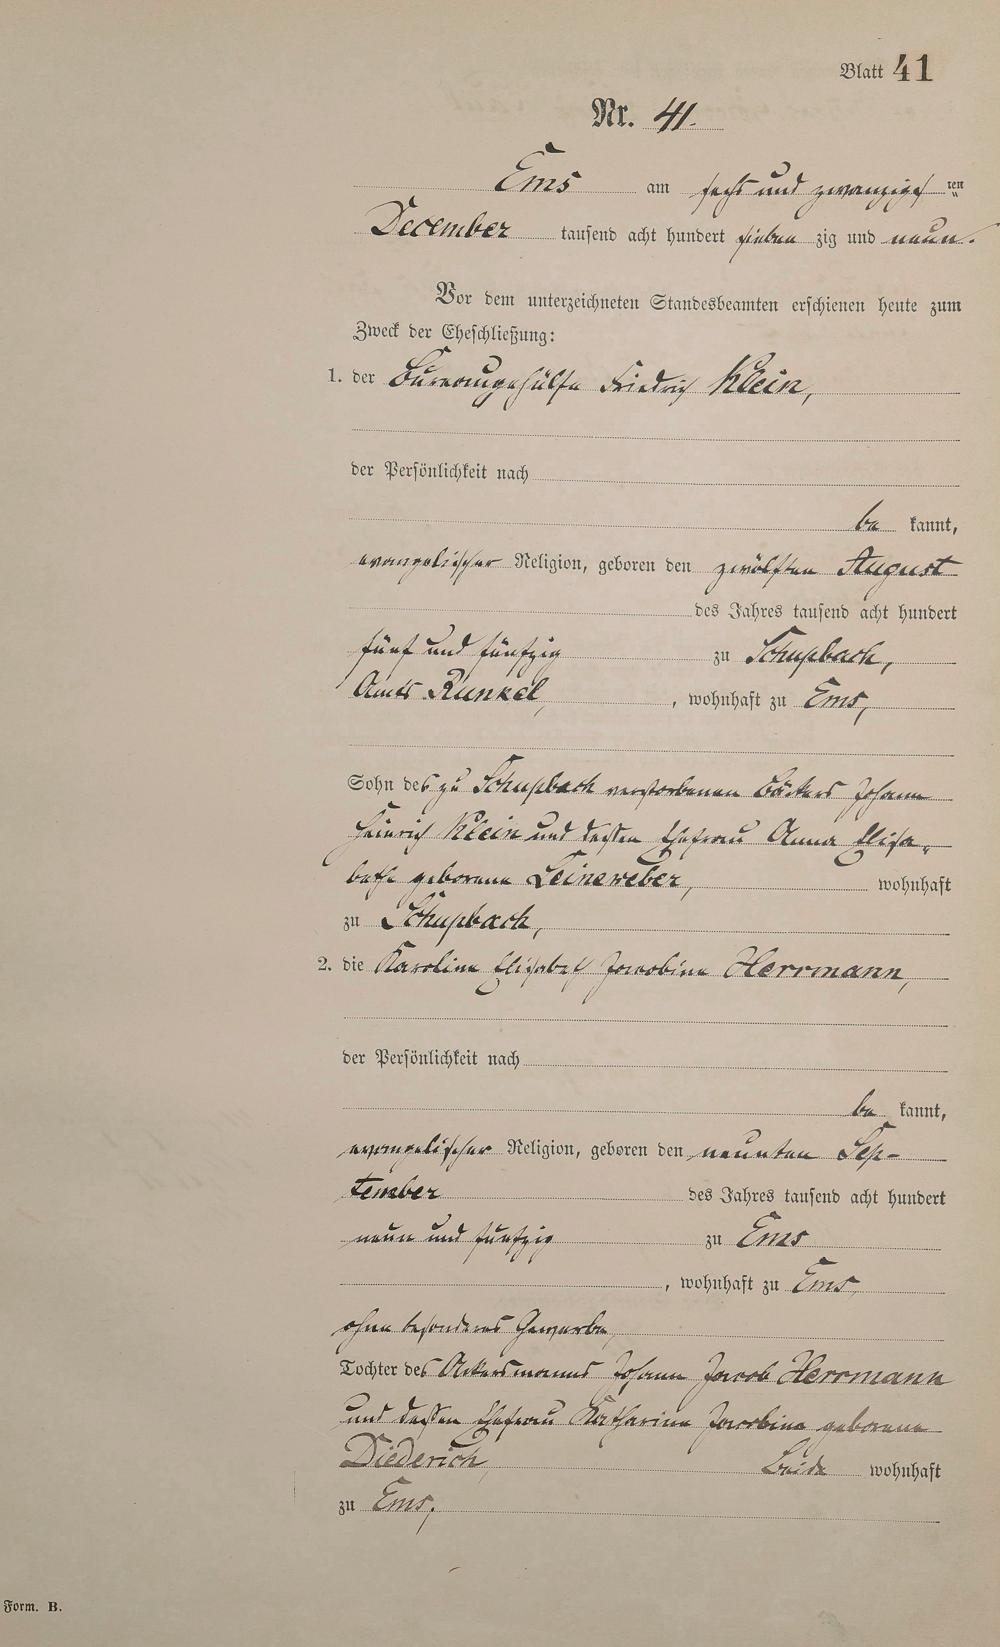 Blatt 41
Nr. 41.
Ems am sechs und zwanzigsten
December tausend acht hundert sieben zig und neun.
Vor dem unterzeichneten Standesbeamten erschienen heute zum
Zweck der Eheschließung:
1. der Bureaugehülfe Friedrich Klein,
der Persönlichkeit nach
be kannt,
evangelischer Religion, geboren den zwölften August
des Jahres tausend acht hundert
fünf und fünfzig zu Schupbach,
Amts Runkel, , wohnhaft zu Ems,
Sohn des zu Schupbach verstorbenen Bäckers Johann
Heinrich Klein und dessen Ehefrau Anna Elisa-
bethe geborene Leineweber, wohnhaft
zu Schupbach,
2. die Karoline Elisabeth Jacobine Herrmann,
der Persönlichkeit nach
be kannt,
evangelischer Religion, geboren den neunten Sep-
tember des Jahres tausend acht hundert
neun und fünfzig zu Ems
, wohnhaft zu Ems,
ohne besonderes Gewerbe,
Tochter des Ackersmanns Johann Jacob Herrmann
und dessen Ehefrau Katharine Jacobine geborene
Diederich, Beide wohnhaft
zu Ems.
Form. B.